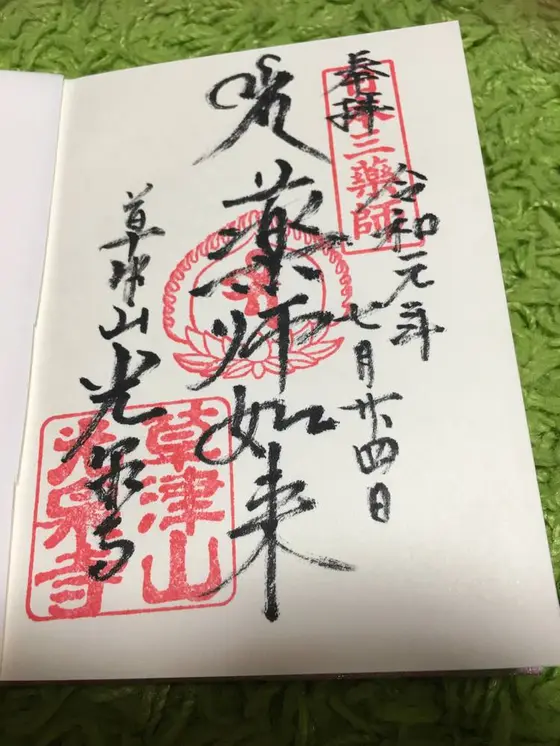 奉拝
三薬師
令和元年
七月廿四日
薬師如来
草津山
光泉寺
草津山
光泉寺